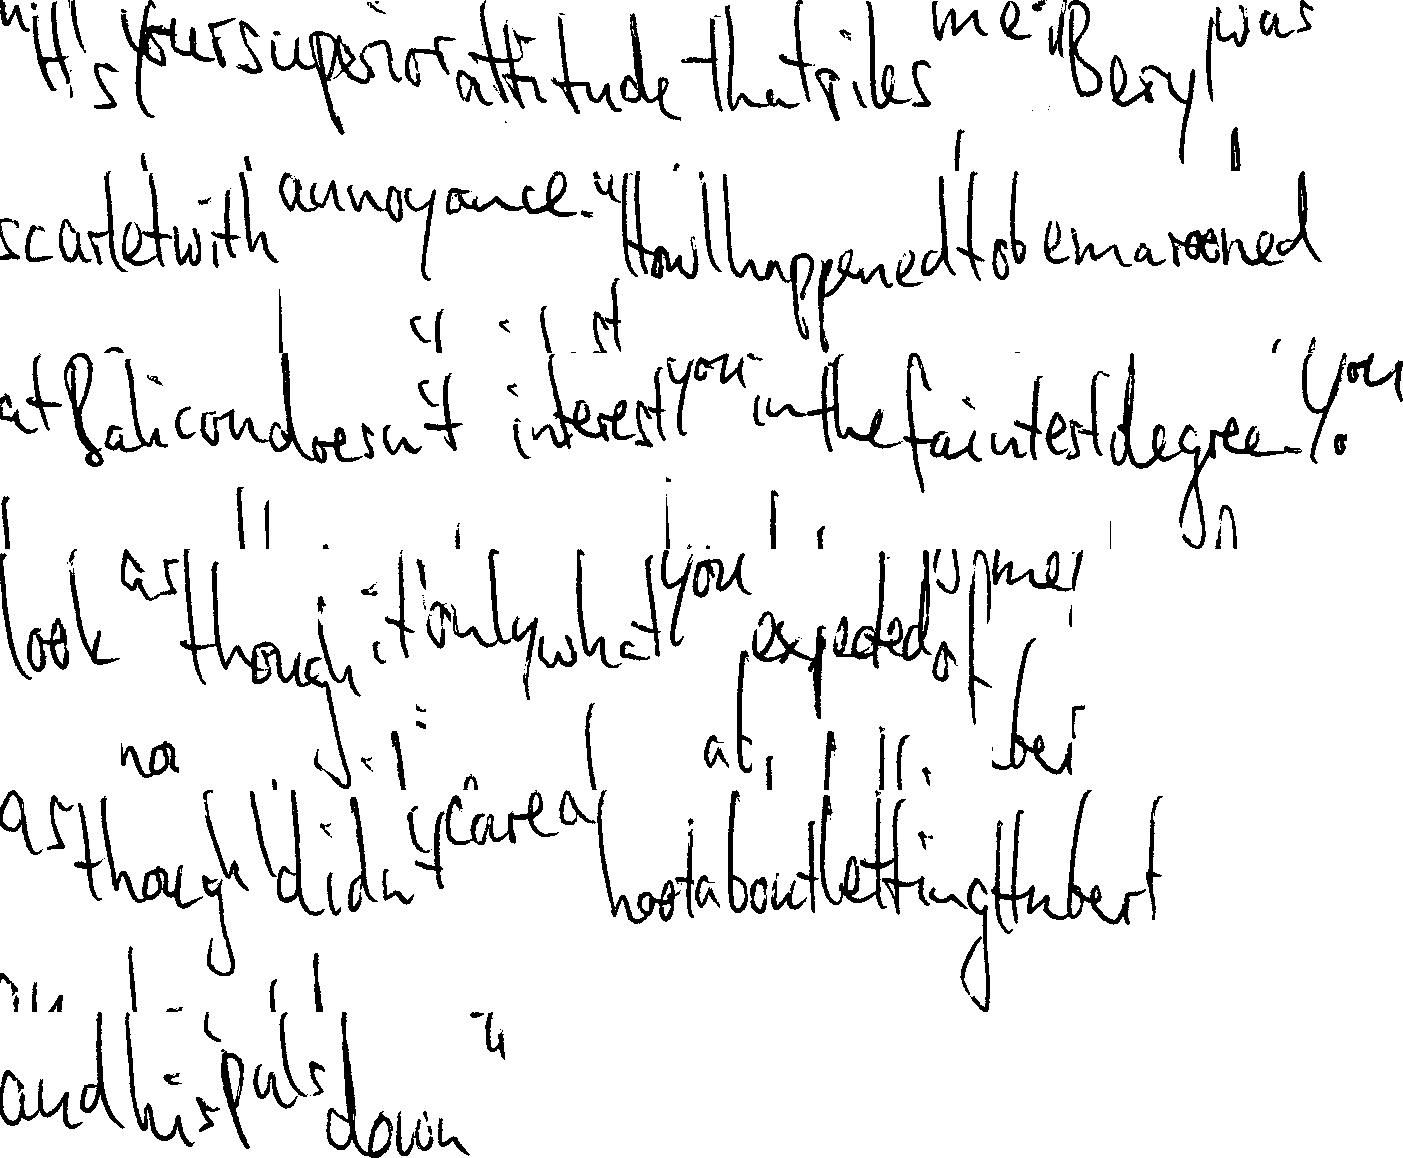 "It's your superior attitude that riles me." Beryl was
scarlet with annoyance. "How I happened to be marooned
at Balicon doesn't interest you in the faintest degree. You
look as though it only what you expected of me,
as though I didn't care a hoot about letting Hubert
and his pals down"